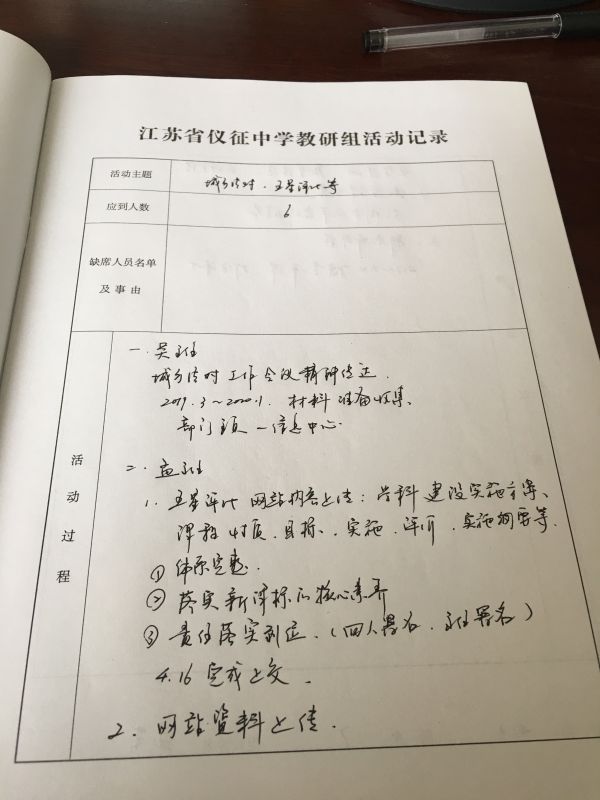 江苏省仪征中学教研组活动记录
活动主题
城乡结对、五星评比等
应到人数
6
缺席人员名单
及事由
活动过程
一、吴主任
城乡结对工作会议精神传达
2019.3~2020.1. 材料准备收集、
部门 — 信息中心
二、孟主任
1. 五星评比网站内容上传：学科建设实施方案、
课程性质、目标、实施、评价、实施纲要等.
① 体系完整.
② 落实新课标的核心素养
③ 责任落实到位.（四人署名、主任署名）
4.16 完成上交.
2. 网站资料上传.